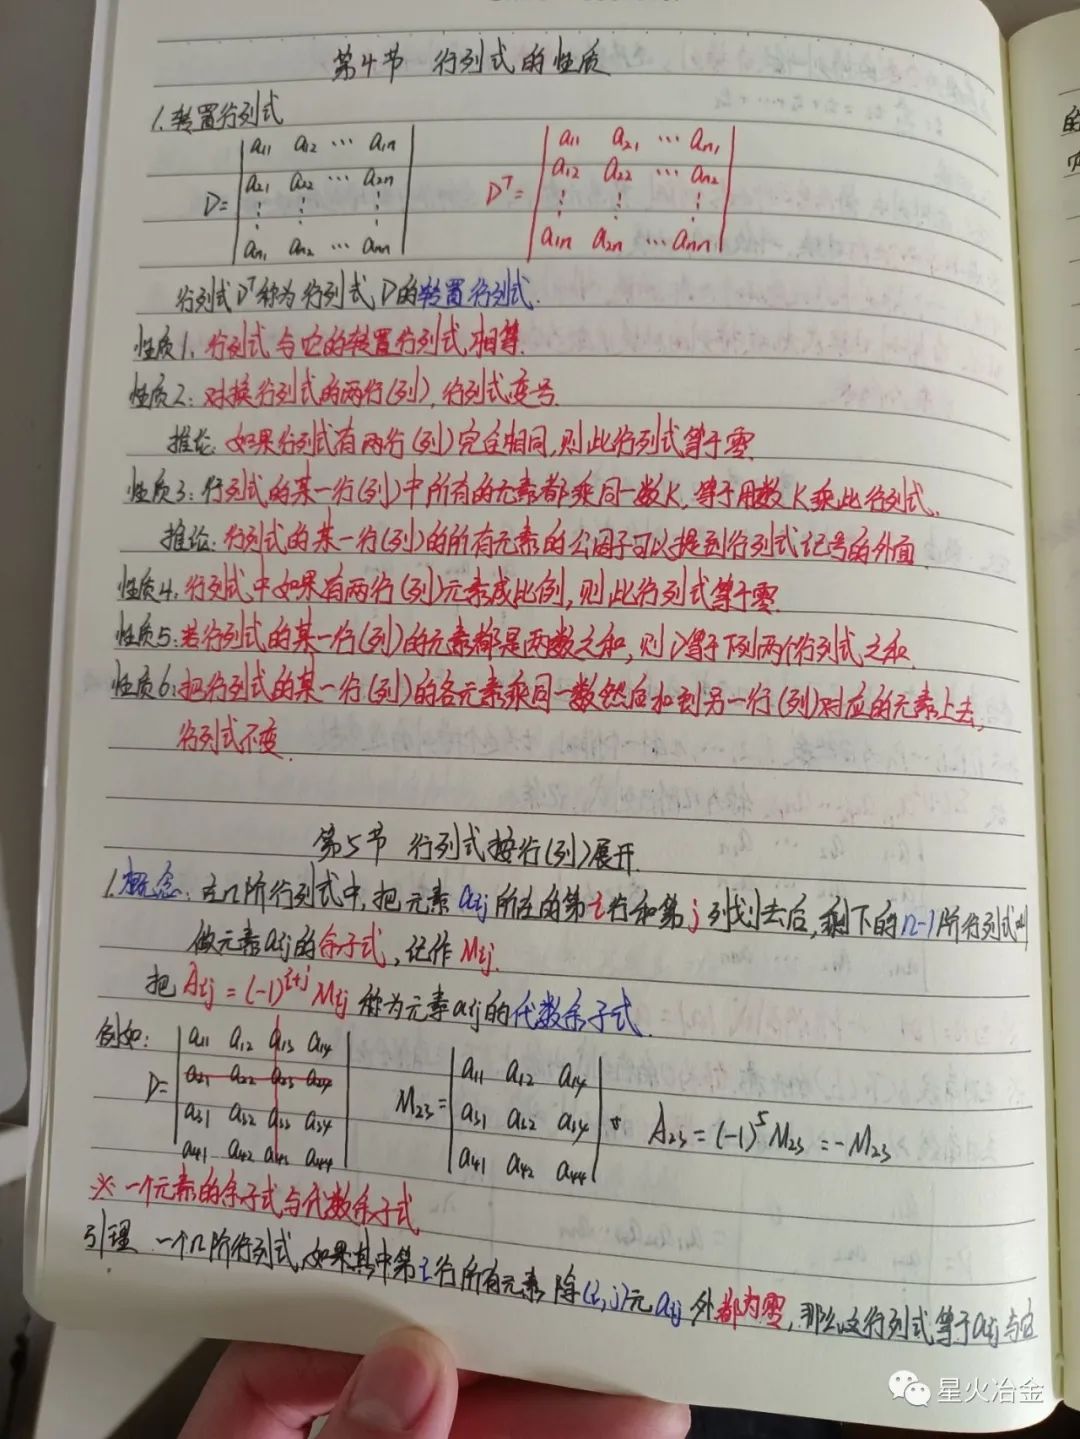 第4节 行列式的性质
1.转置行列式
D= | a11 a12 ⋯ a1n | Dᵀ= | a11 a21 ⋯ an1 |
| a21 a22 ⋯ a2n | | a12 a22 ⋯ an2 |
| ⋮ ⋮ ⋮ | | ⋮ ⋮ ⋮ |
| an1 an2 ⋯ ann | | a1n a2n ⋯ ann |
行列式Dᵀ称为行列式D的转置行列式.
性质1,行列式与它的转置行列式,相等.
性质2:对换行列式的两行(列),行列式变号.
推论:如果行列式有两行(列)完全相同,则此行列式等于零.
性质3:行列式的某一行(列)中所有的元素都乘同一数K,等于用数K乘此行列式.
推论:行列式的某一行(列)的所有元素的公因子可以提到行列式记号的外面.
性质4,行列式中如果有两行(列)元素成比例,则此行列式等于零.
性质5:若行列式的某一行(列)的元素都是两数之和,则D等于下列两个行列式之和.
性质6:把行列式的某一行(列)的各元素乘同一数然后加到另一行(列)对应的元素上去,
行列式不变.
第5节 行列式按行(列)展开.
1.概念:在n阶行列式中,把元素aij所在的第i行和第j列划去后,剩下的n-1阶行列式叫
做元素aij的余子式,记作Mij.
把Aij=(-1)^{i+j}Mij称为元素aij的代数余子式.
例如: | a11 a12 a13 a14 |
D= | a21 a22 a23 a24 | M23= | a11 a12 a14 |
| a31 a32 a33 a34 | | a31 a32 a34 | A23=(-1)⁵M23=-M23
| a41 a42 a43 a44 | | a41 a42 a44 |
※一个元素的余子式与代数余子式
引理 一个n阶行列式,如果其中第i行所有元素除(i,j)元aij外都为零,那么这行列式等于aij与它
的
星火冶金